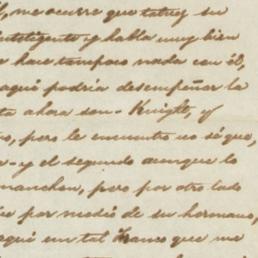 me ocurre que tal vez su
inteligente y habla muy bien
hace tampoco nada con él,
aqui podria desempeñar la
ta ahora son- Knight, y
pero le encuentro no sé que,
- y el segundo aunque lo
manchon, pero por otro lado
por medio de su hermano,
aqui un tal Franco que me